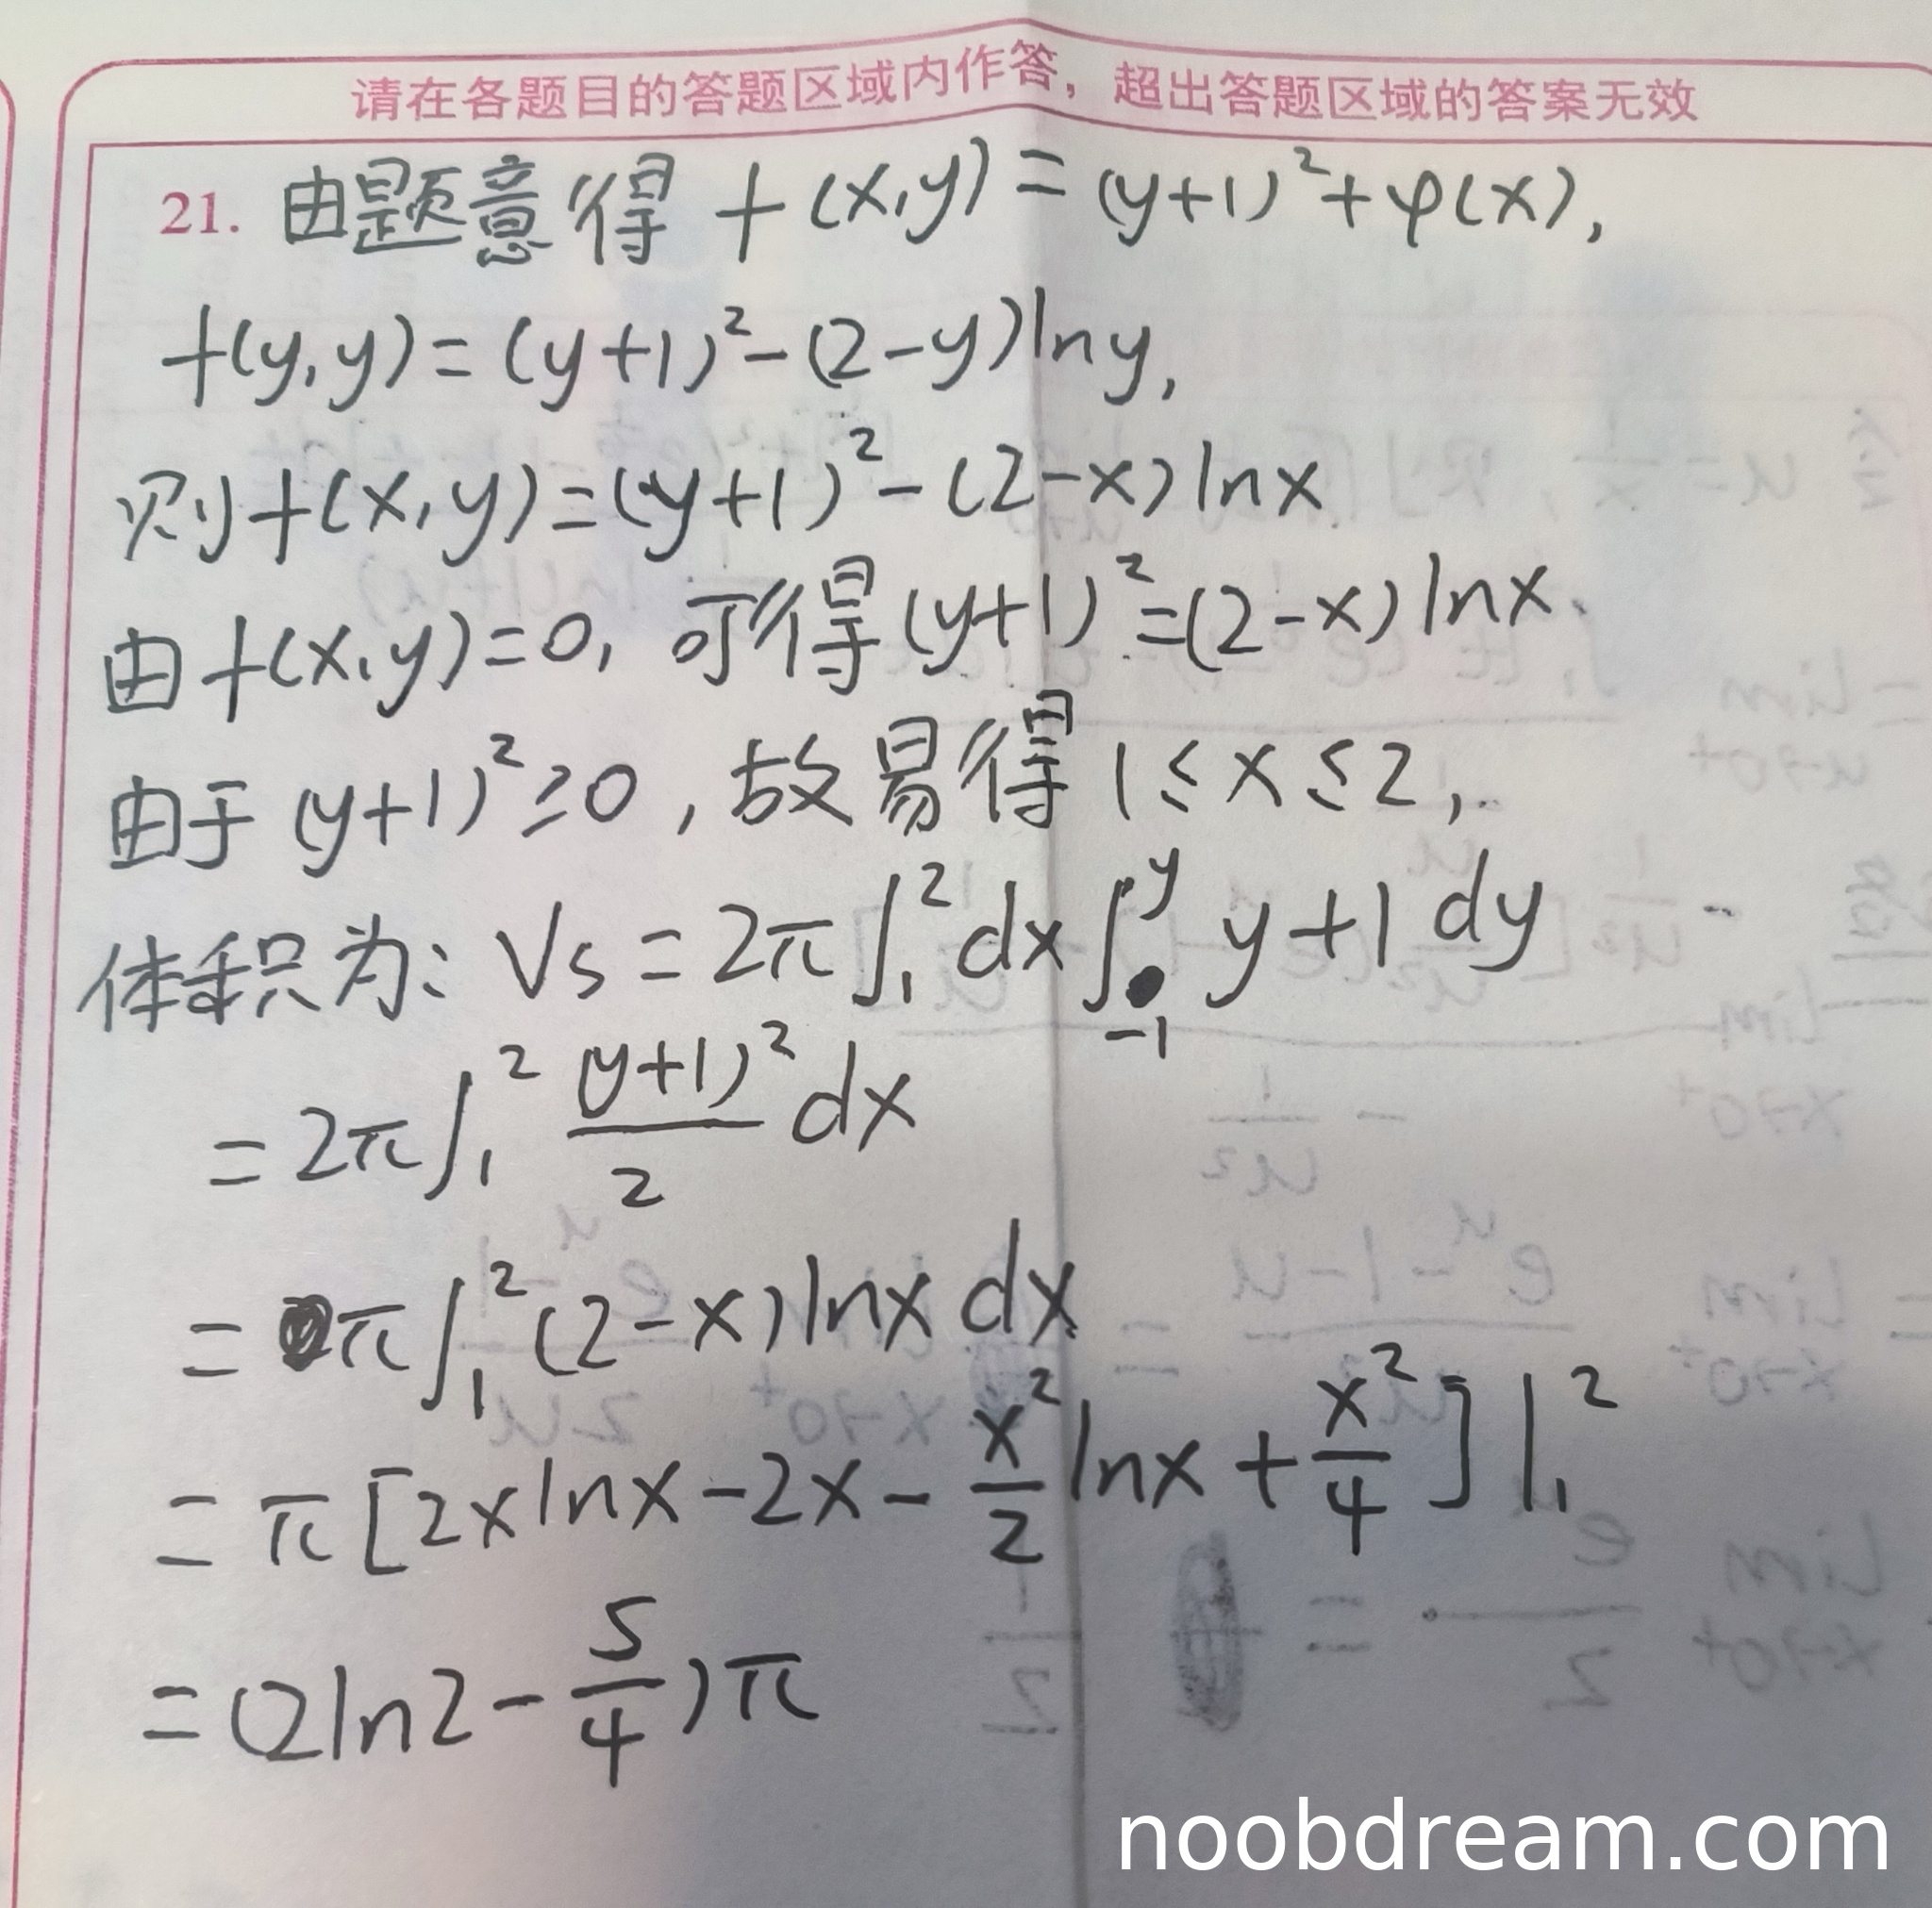 请在各题目的答题区域内作答，超出答题区域的答案无效
21. 由题意得 f(x,y)=(y+1)²+φ(x),
f(y,y)=(y+1)²-(2-y)lny,
则f(x,y)=(y+1)²-(2-x)lnx
由f(x,y)=0, 可得(y+1)²=(2-x)lnx.
由于(y+1)²≥0, 故易得 1≤x≤2,
体积为: Vs=2π∫₁²dx∫₋₁ʸ y+1 dy
=2π∫₁² (y+1)²/2 dx
=π∫₁²(2-x)lnx dx
=π[2xlnx-2x-x²/2 lnx+x²/4]|₁²
=(2ln2-5/4)π
noobdream.com